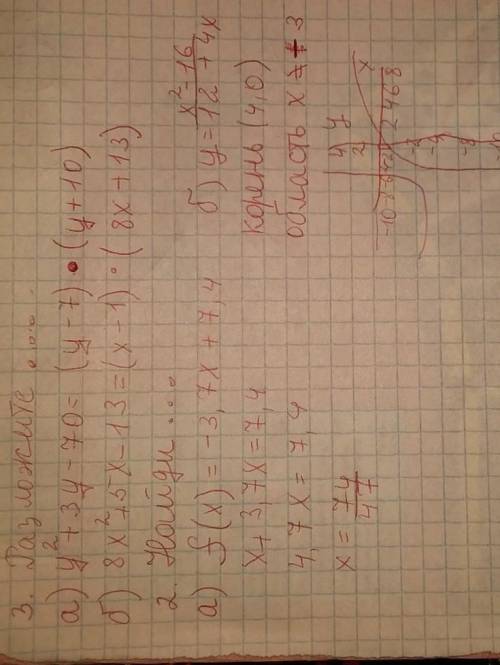 3. Разложите ....
а) y² + 3y - 70 = (y - 7) • (y + 10)
б) 8x² + 5x - 13 = (x - 1) · (8x + 13)
2. Найди ...
а) f(x) = -3,7x + 7,4
x + 3,7x = 7,4
4,7x = 7,4
x = 74/47
б) y = x² - 16 / 12 + 4x
корень (4,0)
область x ≠ 3
y
4
2
x
2 4 6 8